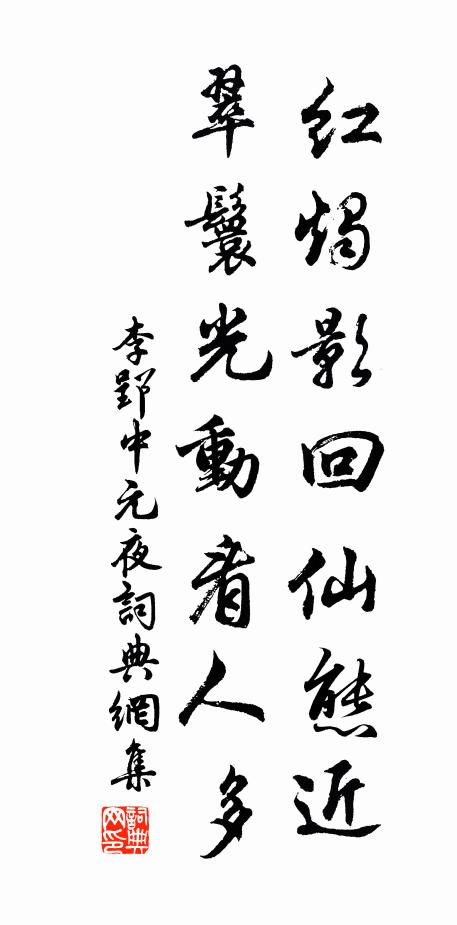 紅燭影回仙態近
翠鬟光動看人多
李郢中元夜詞典網集
詞典
网印